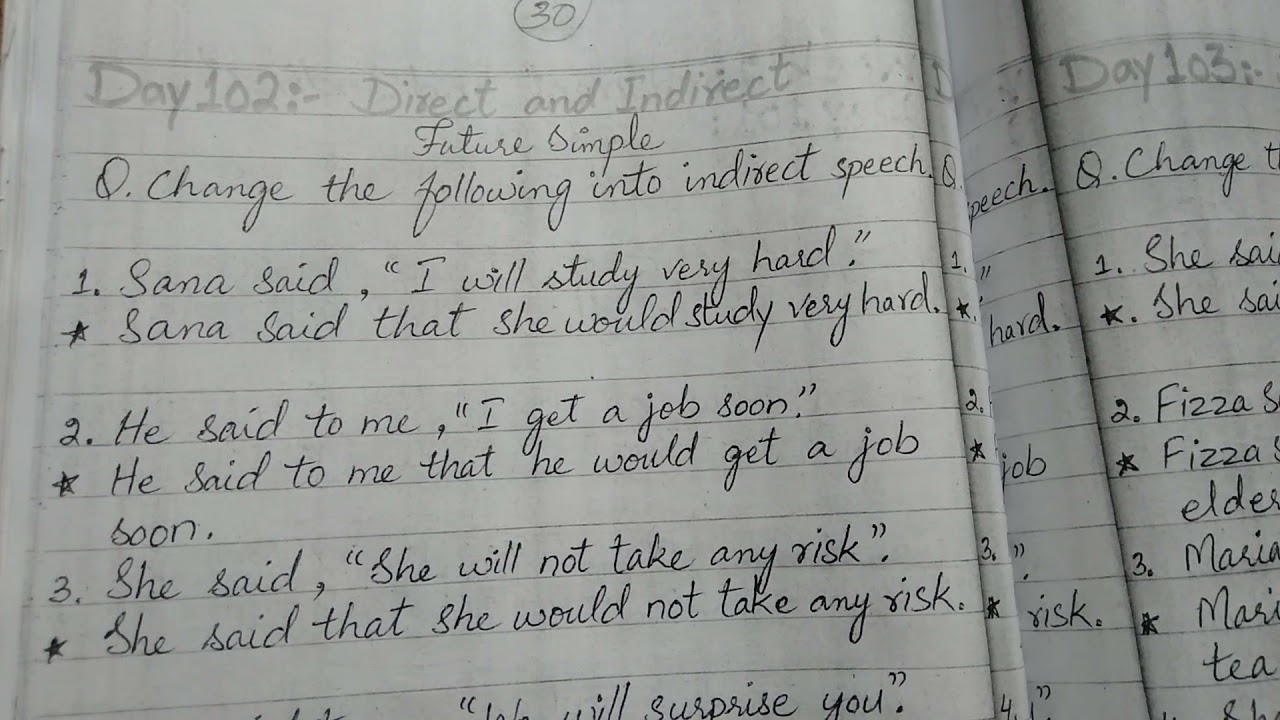 30
Day 102:- Direct and Indirect
Future Simple
Q. Change the following into indirect speech.
1. Sana said, "I will study very hard."
* Sana said that she would study very hard.
2. He said to me, "I get a job soon."
* He said to me that he would get a job
soon.
3. She said, "She will not take any risk".
* She said that she would not take any risk.
will surprise you".
D
Q.
1.
*
2.
*
3.
*
4.
speech.
"
hard.
job
".
risk.
"
Day 103:-
Q. Change
1. She
*. She
2. Fizza
* Fizza
elder
3. Maria
*
tea